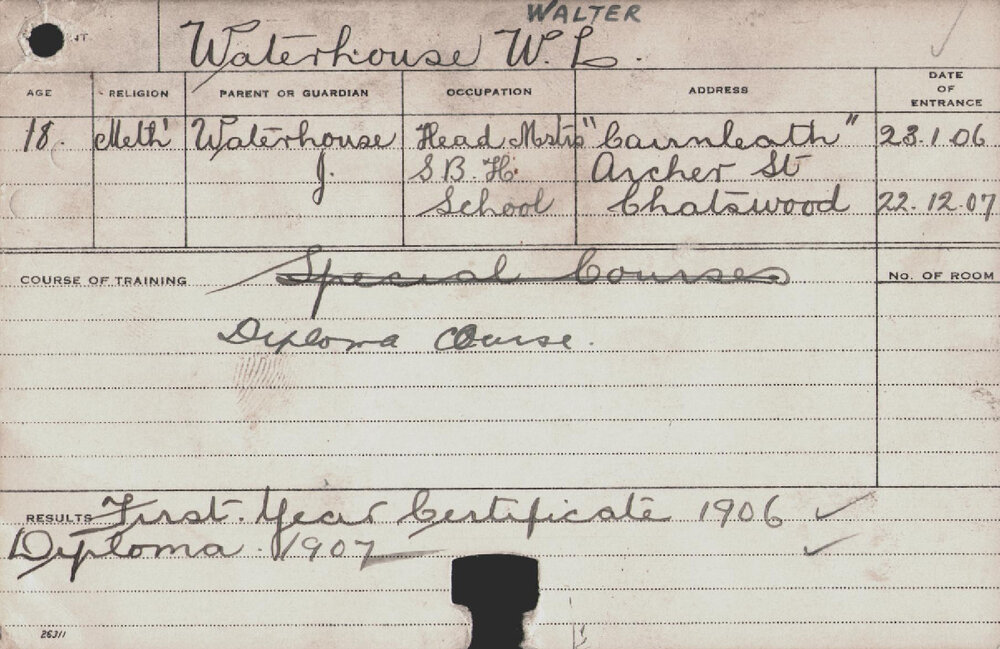 WALTER
NT
Waterhouse W. L.
AGE RELIGION PARENT OR GUARDIAN OCCUPATION ADDRESS DATE OF ENTRANCE
18. Meth' Waterhouse Head Mstrs "Cairnleath" 23.1.06
J. S B. H. Archer St
School Chatswood 22.12.07
COURSE OF TRAINING Special Courses No. OF ROOM
Diploma Course.
RESULTS First. Year Certificate 1906
Diploma. 1907
26311